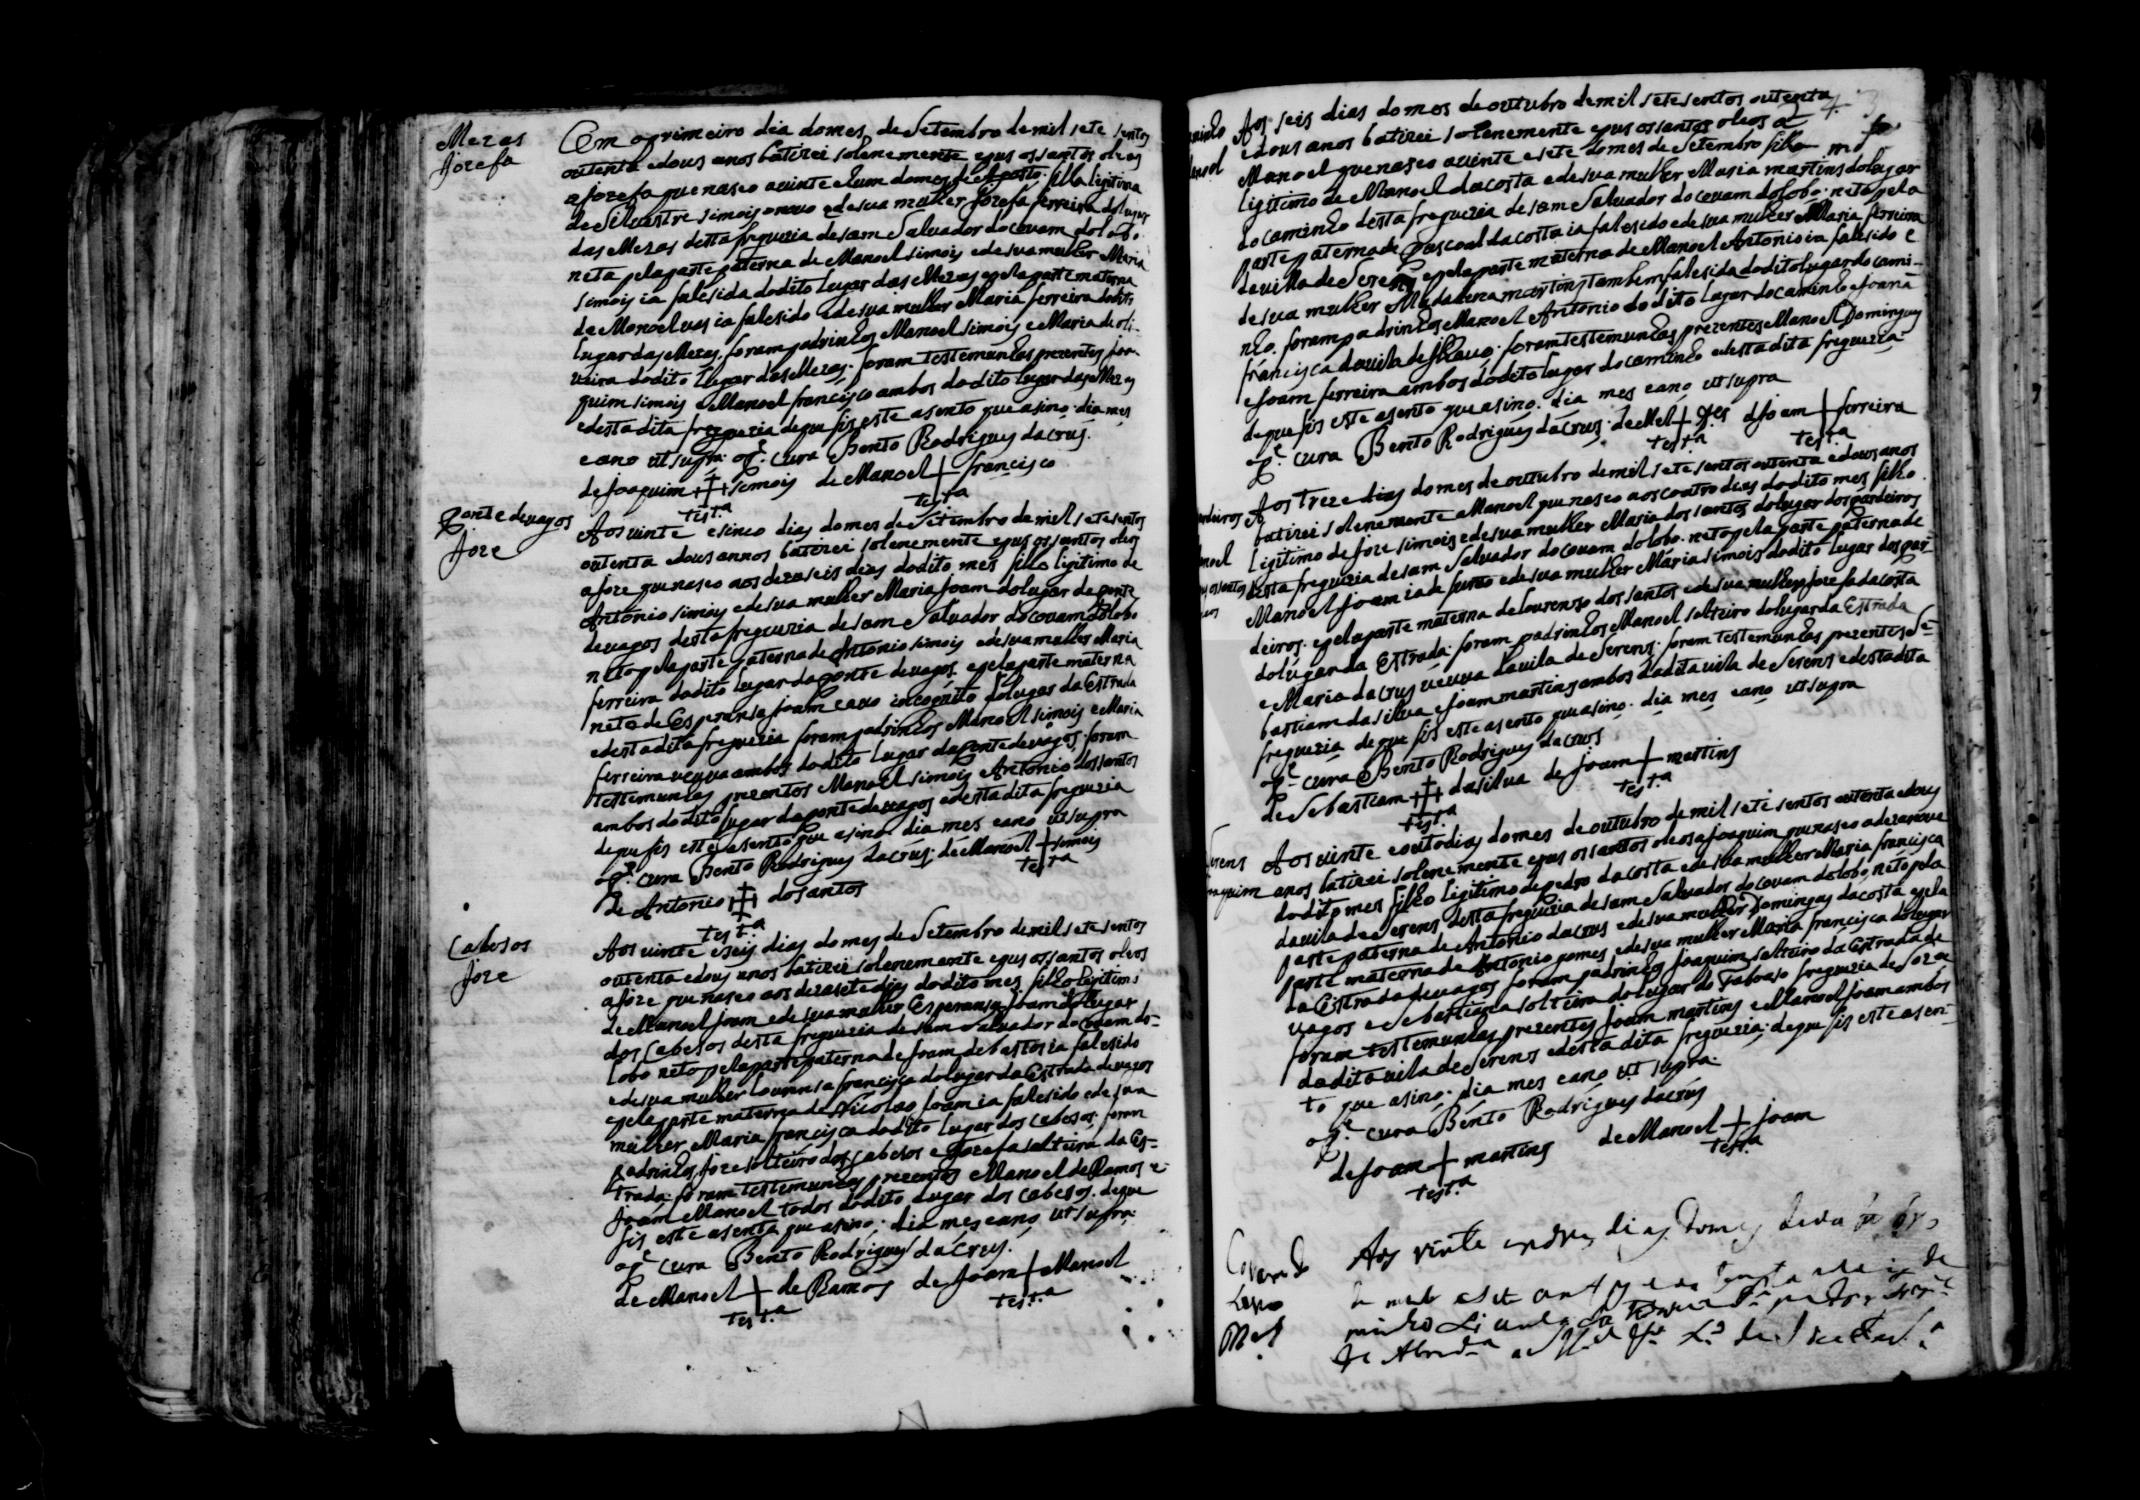 Mezas
Jozefa
Em o primeiro dia do mes de Setembro de mil sete sentos
outenta e dous anos batizei solenemente e pus os santos oleos
a Jozefa que naseo a vinte e hum do mes de Agosto. filla legitima
de Siluestre simois o novo e de sua mulher Jozefa ferreira do lugar
das Mezas desta freguezia de sam Saluador do couam do lobo.
neta pela parte paterna de Manoel simois e de sua mulher Maria
simois ia falesida do dito lugar das Mezas e pela parte materna
de Manoel uas ia falesido e de sua mulher Maria ferreira do dito
lugar das Mezas. foram padrinhos Manoel simois e Maria de oli-
ueira do dito lugar das Mezas. foram testemunhas prezentes Joa-
quim simois e Manoel francisco ambos do dito lugar das Mezas
e desta dita freguezia de que fis este asento que asino. dia mes
e ano ut supra. o P.e cura Bento Rodrigues da crus.
de Joaquim + simois de Manoel + francisco
test.a test.a
Ponte de uagos
Joze
Aos uinte e sinco dias do mes de Setembro de mil sete sentos
outenta e dous annos batizei solenemente e pus os santos oleos
a Joze que naseo aos dezaseis dias do dito mes filho legitimo de
Antonio simois e de sua mulher Maria Joam do lugar da ponte
de uagos desta freguezia de sam Saluador do couam do lobo
neto pela parte paterna de Antonio simois e de sua mulher Maria
ferreira do dito lugar da ponte de uagos. e pela parte materna
neto de Esperansa Joam e auo incognito do lugar da Estrada
e desta dita freguezia foram padrinhos Manoel simois e Maria
ferreira ueuua ambos do dito lugar da ponte de uagos. foram
testemunhas prezentes Manoel simois Antonio dos santos
ambos do dito lugar da ponte de uagos e desta dita freguezia
de que fis este asento que asino. dia mes e ano ut supra
o P.e cura Bento Rodrigues da crus. de Manoel + simois
test.a
de Antonio + do santos
test.a
Cabesos
Joze
Aos uinte e seis dias do mes de Setembro de mil sete sentos
outenta e dous anos batizei solenemente e pus os santos oleos
a Joze que naseo aos dezasete dias do dito mes filho legitimo
de Manoel Joam e de sua mulher Esperansa Joam do lugar
dos Cabesos desta freguezia de sam Saluador do Couam do-
lobo neto pela parte paterna de Joam de bastos ia falesido
e de sua mulher Lourensa francisca do lugar da Estrada de uagos
e pela parte materna de Nicolao Joam ia falesido e de sua
mulher Maria francisca do dito lugar dos Cabesos. foram
padrinhos Joze solteiro dos Cabesos e Jozefa solteira da Es-
trada. foram testemunhas prezentes Manoel de Ramos e
Joam Manoel todos do dito lugar dos Cabesos. de que
fis este asento que asino. dia mes e ano ut supra.
o P.e cura Bento Rodrigues da Crus.
de Manoel + de Ramos de Joam + Manoel
test.a test.a
Aos seis dias do mes de outubro de mil sete sentos outenta
e dous anos batizei solenemente e pus os santos oleos a
Manoel que naseo a uinte e sete do mes de Setembro filho
ligitimo de Manoel da costa e de sua mulher Maria martins do lugar
do caminho desta freguezia de sam Saluador do couam do lobo. neto pela
parte paterna de Pascoal da costa ia falesido e de sua mulher Maria ferreira
da uilla de Serens e pela parte materna de Manoel Antonio ia falesido e
de sua mulher Madalena martins tambem falesida do dito lugar do cami-
nho. foram padrinhos Manoel Antonio do dito lugar do caminho e Joana
francisca da uila de Ilhauo. foram testemunhas prezentes Manoel Domingues
e Joam ferreira ambos do dito lugar do caminho e desta dita freguezia
de que fis este asento que asino. dia mes e ano ut supra
o P.e cura Bento Rodrigues da crus. de Mel + des de Joam + ferreira
test.a test.a
Aos treze dias do mes de outubro de mil sete sentos outenta e dous anos
batizei solenemente a Manoel que naseo aos coatro dias do dito mes filho
ligitimo de Joze simois e de sua mulher Maria dos santos do lugar dos pardeiros
desta freguezia de sam Saluador do couam do lobo. neto pela parte paterna de
Manoel Joam ia defunto e de sua mulher Maria simois do dito lugar dos par-
deiros. e pela parte materna de Lourenso dos santos e de sua mulher Jozefa da costa
do lugar da Estrada. foram padrinhos Manoel solteiro do lugar da Estrada
e Maria da crus ueuua da uila de Serens. foram testemunhas prezentes Se-
bastiam da silua e Joam martins ambos da dita uila de Serens e desta dita
freguezia de que fis este asento que asino. dia mes e ano ut supra
o P.e cura Bento Rodrigues da crus
de Sebastiam + da silua de Joam + martins
test.a test.a
Aos uinte e outo dias do mes de outubro de mil sete sentos outenta e dous
anos batizei solenemente e pus os santos oleos a Joaquim que naseo a dezanoue
do dito mes filho legitimo de pedro da costa e de sua mulher Maria francisca
da uila de Serens desta freguezia de sam Saluador do couam do lobo. neto pela
parte paterna de Antonio da crus e de sua mulher Domingas da costa e pela
parte materna de Antonio gomes e de sua mulher Maria francisca do lugar
da Estrada de uagos foram padrinhos Joaquim solteiro da Estrada de
uagos e Sebastiana solteira do lugar do Taboaso freguezia de Soza
foram testemunhas prezentes Joam martins e Manoel Joam ambos
da dita uila de Serens e desta dita freguezia. de que fis este asen-
to que asino. dia mes e ano ut supra.
o P.e cura Bento Rodrigues da crus
de Joam + martins de Manoel + Joam
test.a test.a
Aos vinte dias do mes